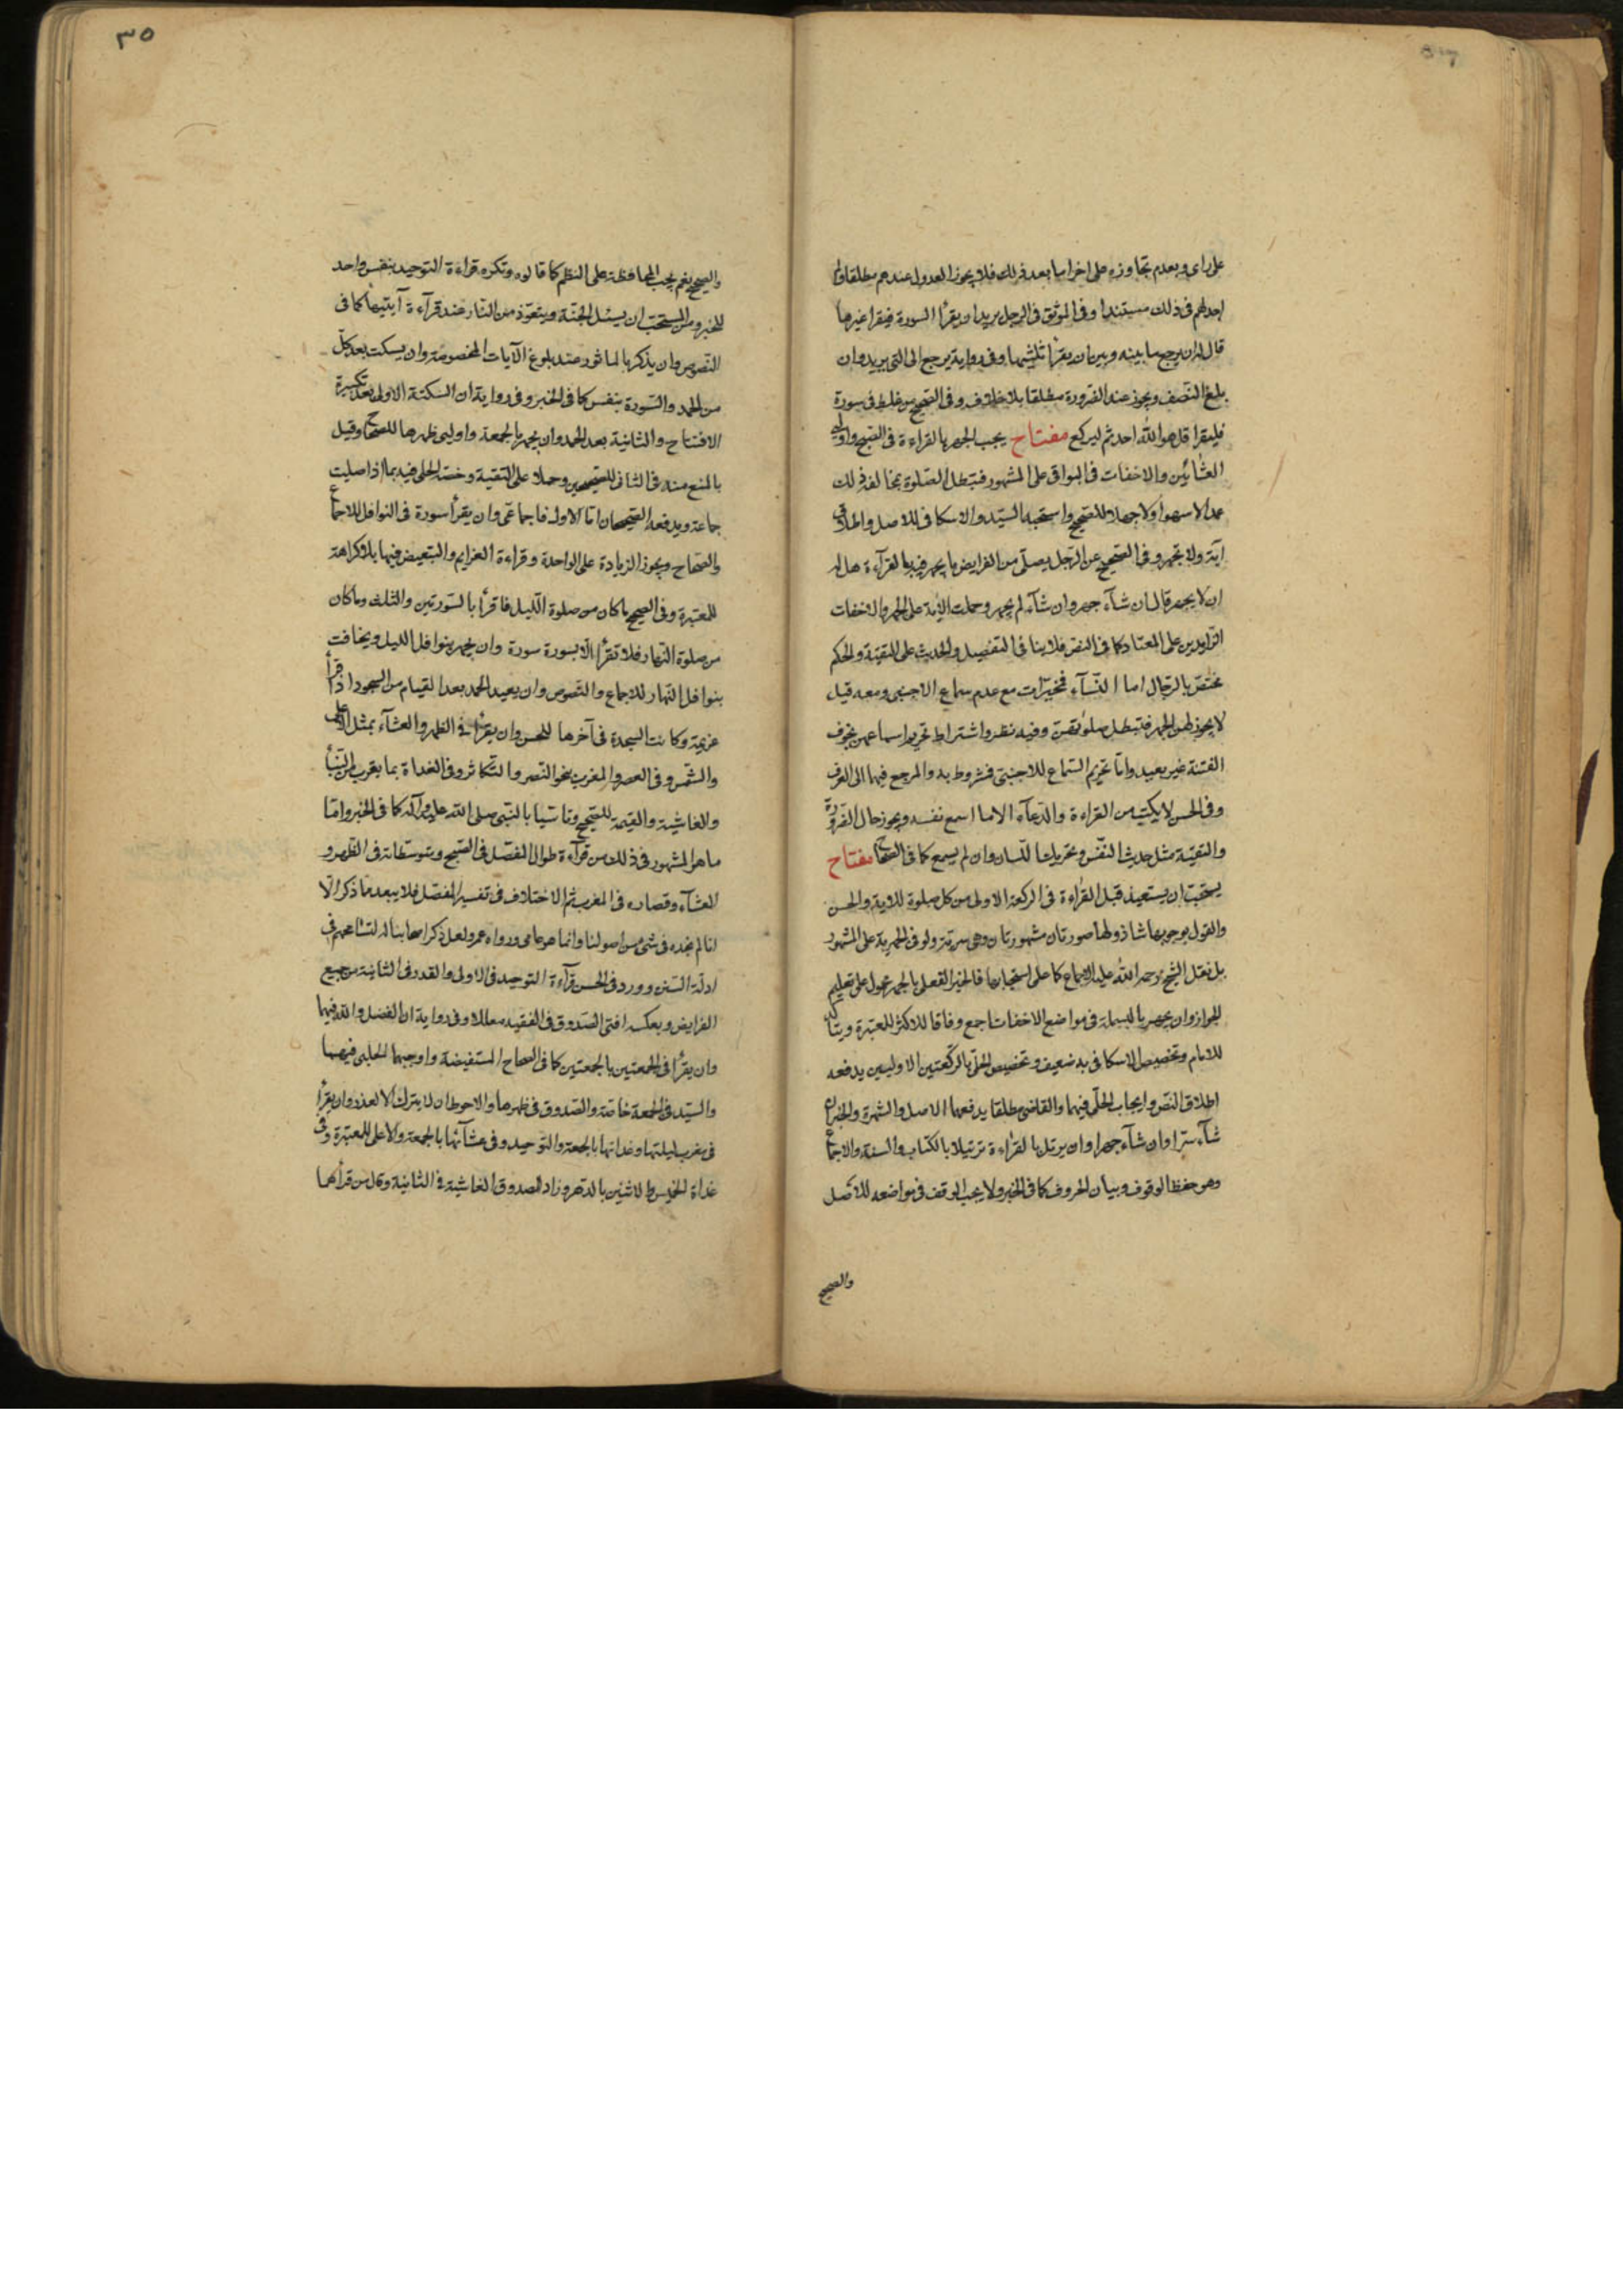 على راى وبعدم تجاوزه على اخر اما بعد ذلك فلا يجوز العدول عندهم مطلقا ولم
اجد لهم فى ذلك مستندا وفى الموثق فى الرجل يريد ان يقرأ السورة فيقرا غيرها
قال له ان يرجع ما بينه وبين ان يقرأ ثلثيها وفى رواية يرجع الى التى يريد وان
بلغ النصف ويجوز عند الضرورة مطلقا بلا خلاف وفى الصحيح من غلط فى سورة
فليقرا قل هو الله احد ثم ليركع مفتاح يجب الجهر بالقراءة فى الصبح واولى
العشائين والاخفات فى البواقى على المشهور فتبطل الصلوة بمخالفة ذلك
عمدا لا سهوا ولا جهلا للصحيح واستحبه السيد والاسكافى للاصل واطلاق
اية ولا تجهر وفى الصحيح عن الرجل يصلى من الفرايض ما يجهر فيه بالقرآءة هل له
ان لا يجهر قال ان شآء جهر وان شآء لم يجهر وحملت الآية على الجهر والاخفات
الزايدين على المعتاد كما فى النص فلا ينافى التفصيل والحديث على التقية والحكم
مختص بالرجال اما النسآء فمخيرات مع عدم سماع الاجنبى ومعه قيل
لا يجوز لهن الجهر فتبطل صلوتهن وفيه نظر واشتراط تحريم اسماعهن بخوف
الفتنة غير بعيد واما تحريم السماع للاجنبى فمشروط به والمرجع فيهما الى العرف
وفى الحسن لا يكتب من القراءة والدعآء الا ما اسمع نفسه ويجوز حال الضرورة
والتقية مثل حديث النفس وتحريك اللسان وان لم يسمع كما فى الصحاح مفتاح
يستحب ان يستعيذ قبل القراءة فى الركعة الاولى من كل صلوة للاية والحسن
والقول بوجوبها شاذ ولها صورتان مشهورتان وهى سرية ولو فى الجهرية على المشهور
بل نقل الشيخ رحمه الله عليه الاجماع كما على استحبابها فالخبر الفعلى بالجهر محمول على تعليم
الجواز وان يجهر بالبسملة فى مواضع الاخفات اجمع وفاقا للاكثر للمعتبرة ويتأكد
للامام وتخصيص الاسكافى به ضعيف وتخصيص الحلى بالركعتين الاوليين يدفعه
اطلاق النص وايجاب الحلبى فيهما والقاضى مطلقا يدفعهما الاصل والشهرة والخبران
شآء سرا وان شآء جهرا وان يرتل بالقراءة ترتيلا بالكتاب والسنة والاجماع
وهو حفظ الوقوف وبيان الحروف كما فى الخبر ولا يجب الوقف فى مواضعه للاصل
والصحيح
٣٥
والصحيح نعم يجب المحافظة على النظم كما قالوه وتكره قراءة التوحيد بنفس واحد
للخبر ومن المستحب ان يسئل الجنة ويتعوذ من النار عند قرآءة آيتيهما كما فى
النصوص وان يذكر بالماثور عند بلوغ الآيات المخصوصة وان يسكت بعد كل
من الحمد والسورة بنفس كما فى الخبر وفى رواية ان السكتة الاولى بعد تكبيرة
الافتتاح والثانية بعد الحمد وان يجهر بالجمعة واوليى ظهرها للصحاح وقيل
بالمنع منه فى الثانى للصحيحين وحملا على التقية وخصه الحلى فيه بما اذا صليت
جماعة ويدفعه الصحيحان اما الاول فاجماعى وان يقرأ سورة فى النوافل للاجماع
والصحاح ويجوز الزيادة على الواحدة وقراءة العزايم والتبعيض فيها بلا كراهة
للمعتبرة وفى الصحيح ما كان من صلوة الليل فاقرأ بالسورتين والثلث وما كان
من صلوة النهار فلا تقرأ الا بسورة سورة وان يجهر بنوافل الليل ويخافت
بنوافل النهار للاجماع والنصوص وان يعيد الحمد بعد القيام من السجود اذا قرأ
عزيمة وكانت السجدة فى آخرها للحسن وان يقرأ فى الظهر والعشآء بمثل الاعلى
والشمس وفى العصر والمغرب بنحو النصر والتكاثر وفى الغداة بما يقرب من النبأ
والغاشية والقيمة للصحيح وتاسيا بالنبى صلى الله عليه وآله كما فى الخبر واما
ما هو المشهور فى ذلك من قرآءة طوال المفصل فى الصبح ومتوسطاته فى الظهر و
العشآء وقصاره فى المغرب ثم الاختلاف فى تفسير المفصل فلا يبعد مما ذكر الا
انا لم نجده فى شئ من اصولنا وانما هو عامى ورواه عمر ولعل ذكر اصحابنا له لتسامحهم فى
ادلة السنن وورد فى الحسن قرآءة التوحيد فى الاولى والقدر فى الثانية من جميع
الفرايض وبعكسه افتى الصدوق فى الفقيه معللا وفى رواية ان الفضل والله فيهما
وان يقرأ فى الجمعتين بالجمعتين كما فى الصحاح المستفيضة واوجبهما الحلبى فيهما
والسيد فى الجمعة خاصة والصدوق فى ظهرها والاحوط ان لا يترك الا لعذر وان يقرأ
فى مغرب ليلتها وغداتها بالجمعة والتوحيد وفى عشآئها بالجمعة والاعلى للمعتبرة وفى
غداة الخميس والاثنين بالدهر وزاد الصدوق الغاشية فى الثانية وقال من قرأهما